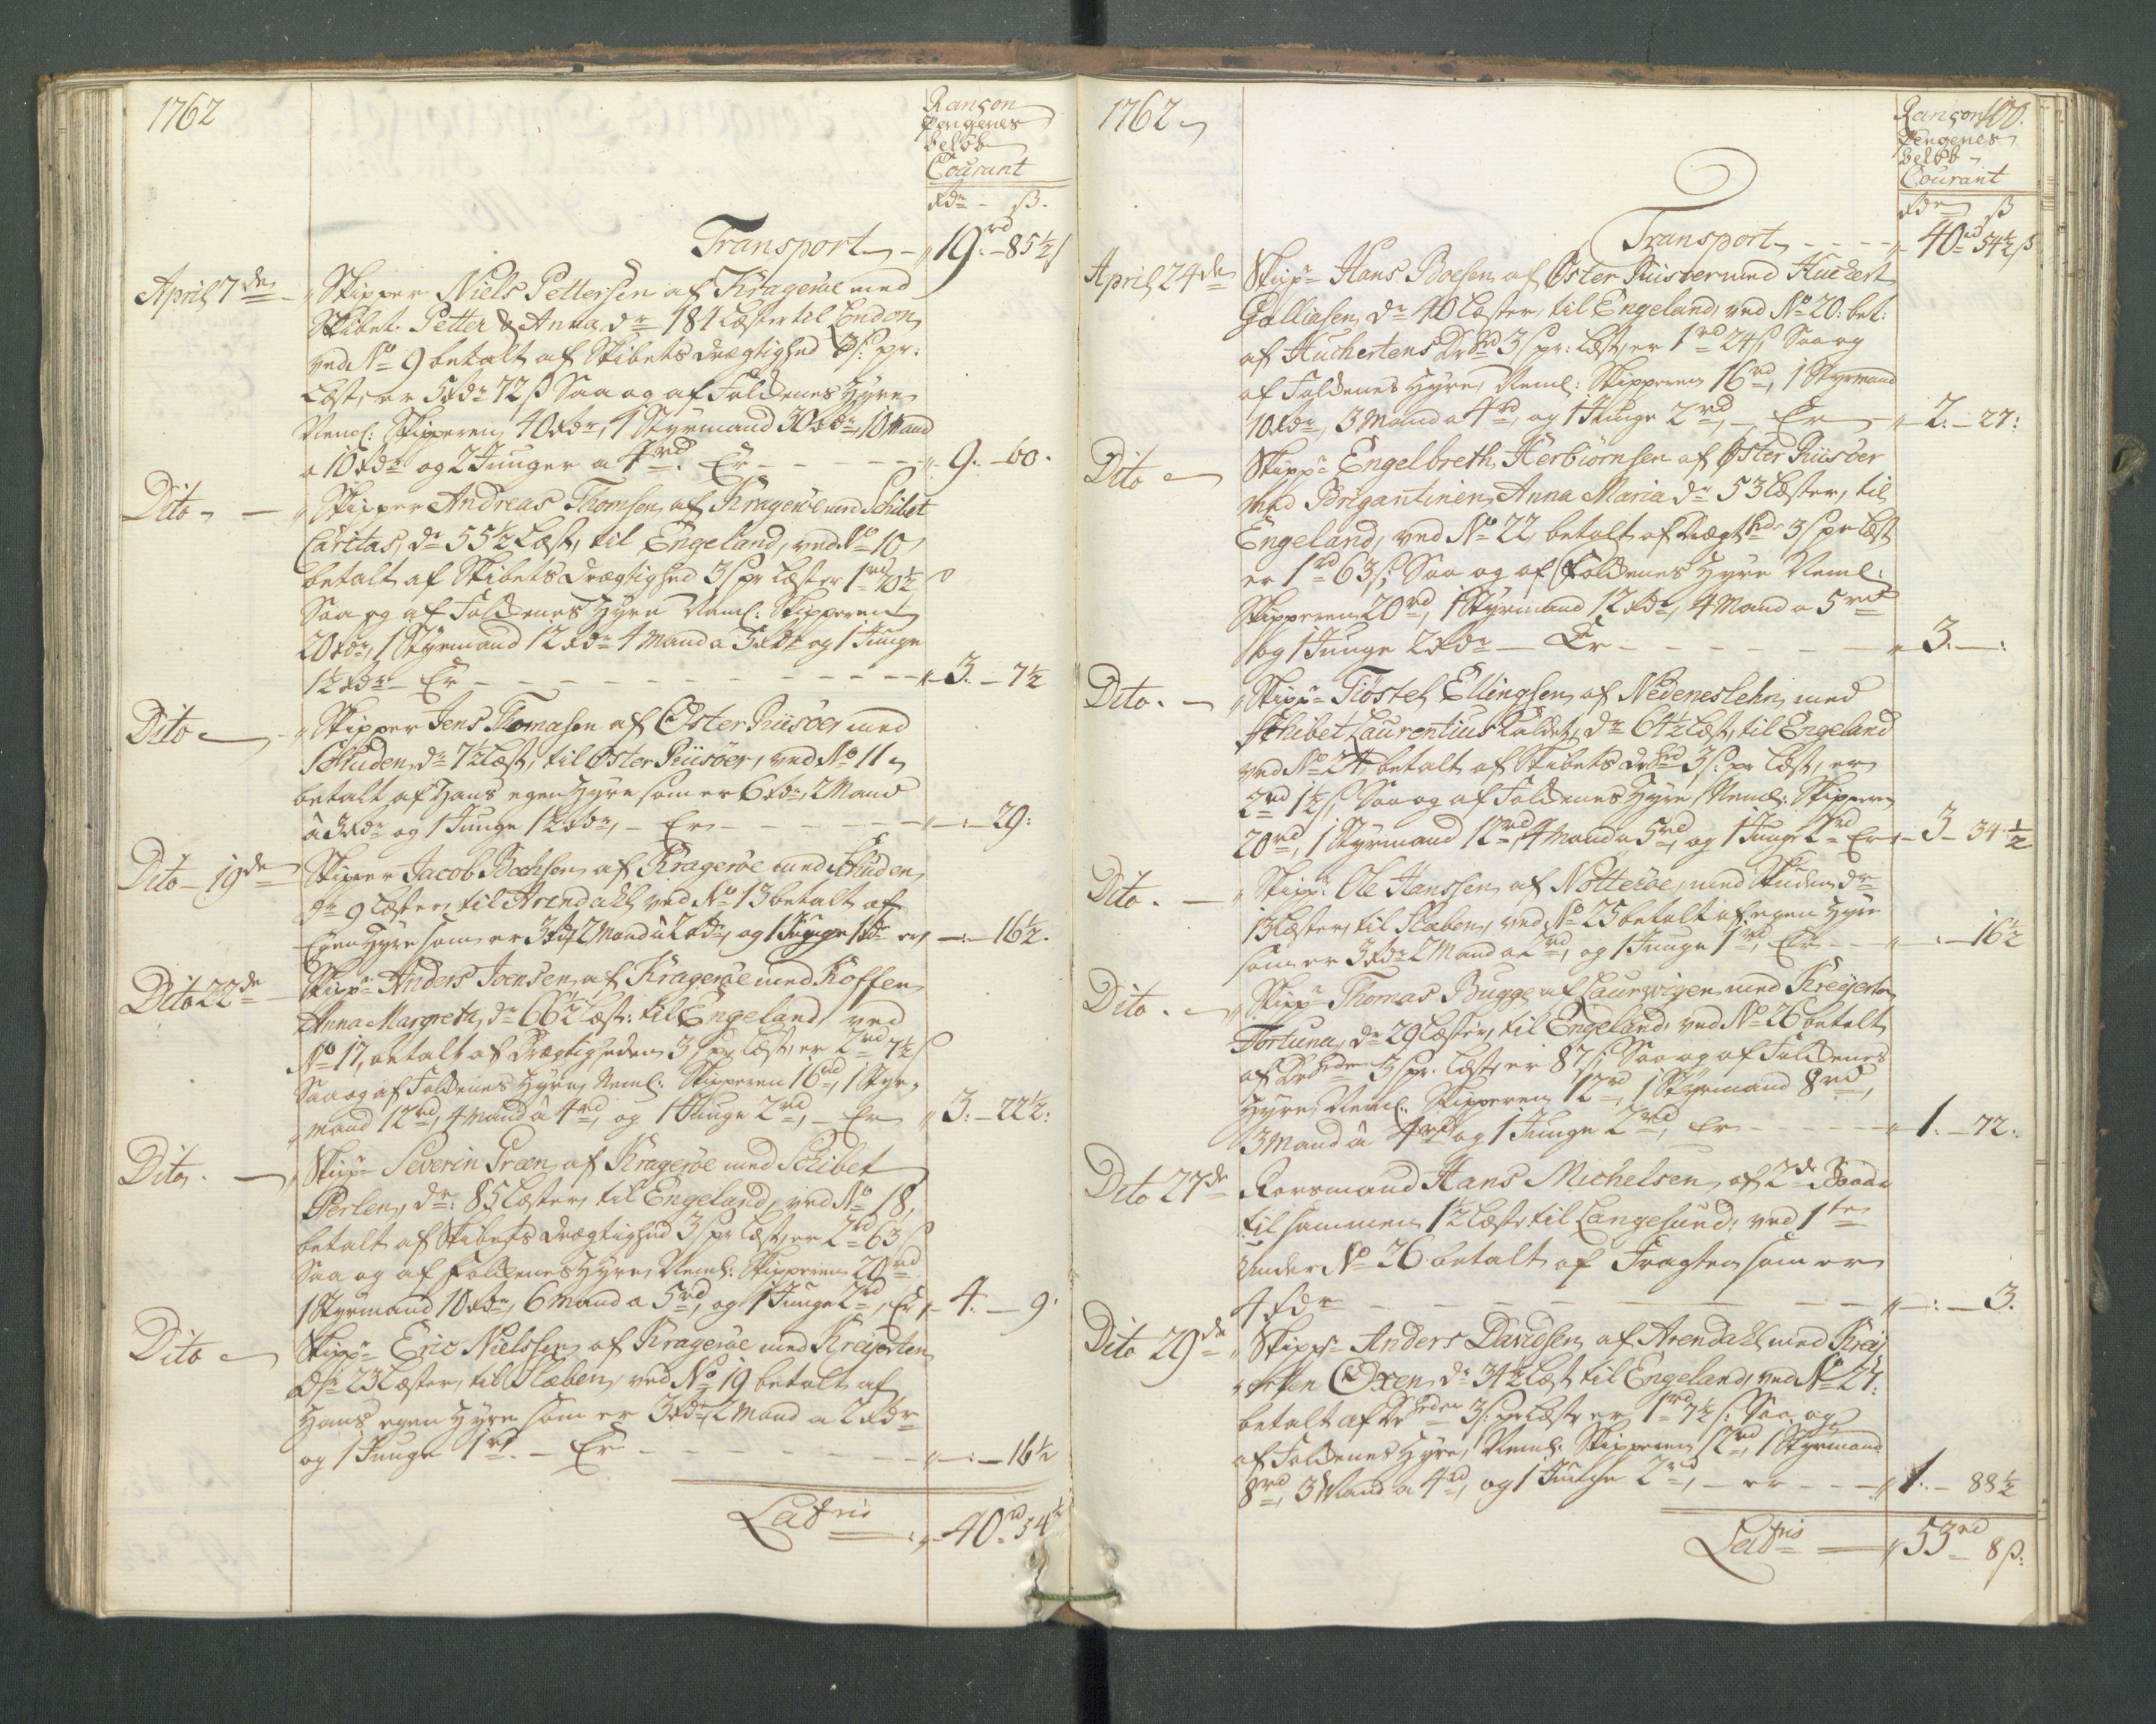 1762
Rançon
Pengenes
beløb
Courant
rdr - ß.
Transport - 19rd - 85½ ß
April 7de - Skipper Niels Pettersen af Kragerøe med
Skibet Petter & Anna, dr 181 Læster til London,
ved No 9 betalt af Skibets Drægtighed 3 ß: pr:
Læst, er 5 rdr 72 ß Saa og af Folckenes Hyre
Neml: Skipperen 40 rdr, 1 Styrmand 30 rdr, 10 Mand
a 10 rdr og 2 Junger a 4 rd. Er - - - 9. - 60.
Dito - Skipper Andreas Thomsen af Kragerøe med Schibet
Caritas, dr 55½ Læst, til Engeland, ved No 10
betalt af Skibets Drægtighed 3 ß pr Læst er 1 rd 70½ ß
Saa og af Folckenes Hyre Neml: Skipperen
20 rdr, 1 Styrmand 12 rdr 4 Mand a 5 rdr og 1 Junge
1½ rdr - Er - - - 3. - 7½
Dito - Skipper Jens Thomasen af Øster Riisøer med
Skuden, dr 7½ Læst, til Øster Riisøer, ved No 11
betalt af Hans egen Hyre som er 6 rdr, 2 Mand
à 3 rdr og 1 Junge 1½ rdr, - Er - - - : - 29:
Dito - 19de Skipper Jacob Bochsen af Kragerøe med Skuden
dr 9 Læster, til Arendahl ved No 13 betalt af
Egen Hyre som er 3 rdr 2 Mand à 2 rdr, og 1 Junge 1 rdr er - : - 16½.
Dito 22de Skippr Anders Joensen af Kragerøe med Koffen
Anna Margreth, dr 66½ Læst: til Engeland ved
No 17, betalt af Drægtigheden 3 ß pr Læst, er 2 rd 7½ ß
Saa og af Folckenes Hyre, Neml: Skipperen 16 rd, 1 Styr,
mand 12 rd, 4 Mand à 4 rd, og 1 Junge 2 rd, - Er 3. - 22½:
Dito. - Skippr Severin Præn af Kragerøe med Schibet
Perlen, dr: 85 Læster, til Engeland, ved No 18,
betalt af Skibets Drægtighed 3 ß pr Læst, er 2 rd 63 ß
Saa og af Folckenes Hyre, Neml: Skipperen 20 rd
1 Styrmand 10 rdr, 6 Mand a 5 rd, og 1 Junge 2 rd, Er 4. - 9.
Dito - Skippr Eric Nielssen af Kragerøe med Kreijerten
dr 23 Læster, til Slæben, ved No 19 betalt af
Hans egen Hyre som er 3 rdr, 2 Mand a 2 rdr
og 1 Junge 1 rd. - Er - - - : - 16½
Latris - 40 rd 54½
1762
100.
Rançon
Pengenes
beløb
Courant
rdr ß
Transport - - - 40 rd 54½ ß
April 24de Skippr Hans Boesen af Øster Riisøer med Huckert
Galliasen, dr 40 Læster, til Engeland, ved No 20: bet:
af Huckertens Drhed 3 ß pr: Læst, er 1 rd 24 ß Saa og
af Folckenes Hyre, Neml: Skipperen 16 rd, 1 Styrmand
10 rdr, 3 Mand a 4 rd, og 1 Junge 2 rd, - Er - 2. - 27:
Dito - Skippr Engelbreth Herbiørnsen af Øster Riisøer
med Brigantinen Anna Maria dr 53 Læster, til
Engeland, ved No 22, betalt af Drægthd 3 ß pr Læst
er 1 rd 63 ß; Saa og af Folckenes Hyre Neml:
Skipperen 20 rd, 1 Styrmand 12 rdr, 4 Mand a 5 rd
og 1 Junge 2 rdr - Er - - - 3. - :
Dito. - Skippr Tiøstel Ellingsen af Nedeneslehn med
Skibet Laurentius kaldet, dr 64½ Læst, til Engeland
ved No 24, betalt af Skibets Drhed 3 ß: pr Læst, er
2 rd 1½ ß Saa og af Folckenes Hyre, Neml: Skipperen
20 rd, 1 Styrmand 12 rd, 4 Mand a 5 rd, og 1 Junge 2 rd Er 3 - 34½
Dito. - Skippr Ole Hanssen af Nøtterøe, med Skuden dr
13 Læster, til Slæben, ved No 25 betalt af egen Hyre
som er 3 rdr 2 Mand a 2 rd, og 1 Junge 1 rd, Er - - . - 16½
Dito. - Skippr Thomas Bugge af Laurwigen med Kreijerten
Fortuna, dr 29 Læster, til Engeland, ved No 26 betalt
af Drheden 3 ß pr. Læst, er 87 ß; Saa og af Folckenes
Hyre, Neml: Skipperen 12 rd, 1 Styrmand 8 rd,
3 Mand à 4 rd og 1 Junge 2 rd, Er - - - 1. - 72:
Dito 27de Rorsmand Hans Michelsen, af 2de Baade
tilsammen 1½ Læst, til Langesund, ved 1te
Under No 26 betalt af Fragten som er
4 rdr - - - : - 3.
Dito 29de Skippr Anders Davidsen af Arendahl med Kreij
erten Oxen, dr 34½ Læst til Engeland, ved No 27:
betalt af Drheden 3 ß: pr Læst, er 1 rd 7½ ß: Saa og
af Folckenes Hyre, Neml: Skipperen 12 rd, 1 Styrmand
8 rd, 3 Mand a 4 rd, og 1 Junge 2 rd, - er - - - 1. - 88½
Latris - 53 rd 8 ß: